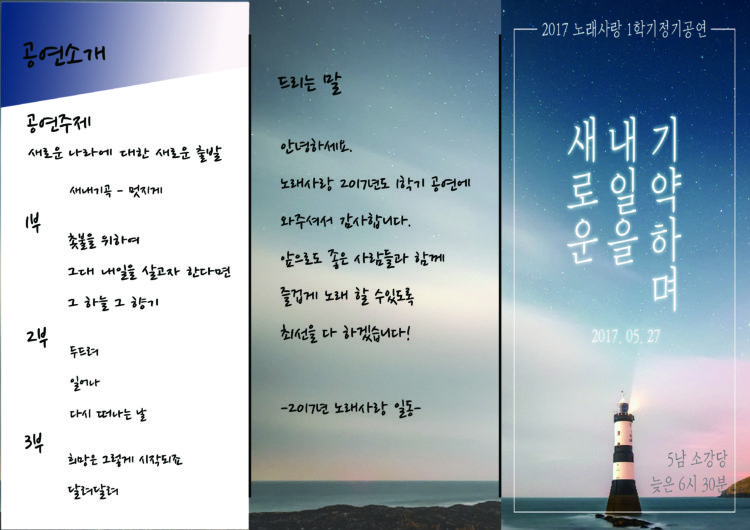 공연소개
공연주제
새로운 나라에 대한 새로운 출발
새내기곡 - 멋지게
1부
촛불을 위하여
그대 내일을 살고자 한다면
그 하늘 그 향기
2부
두드려
일어나
다시 떠나는 날
3부
희망은 그렇게 시작되죠
달려달려
드리는 말
안녕하세요.
노래사랑 2017년도 1학기 공연에
와주셔서 감사합니다.
앞으로도 좋은 사람들과 함께
즐겁게 노래 할 수있도록
최선을 다 하겠습니다!
-2017년 노래사랑 일동-
2017 노래사랑 1학기정기공연
새로운
내일을
기약하며
2017. 05. 27
5남 소강당
늦은 6시 30분